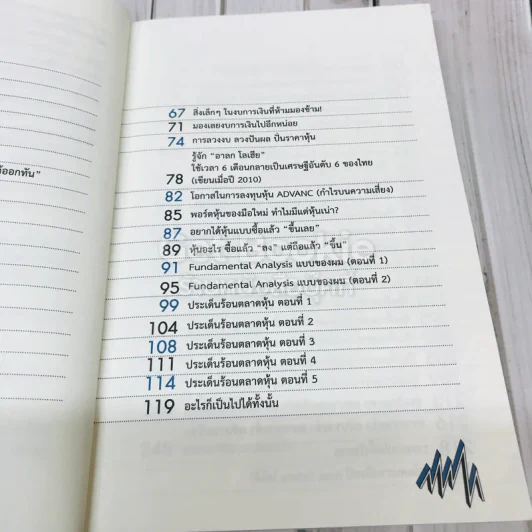 ้ออกทัน"
67 สิ่งเล็กๆ ในงบการเงินที่ห้ามมองข้าม!
71 มองเลยงบการเงินไปอีกหน่อย
74 การลวงงบ ลวงปันผล ปั่นราคาหุ้น
รู้จัก "อาลก โลเฮีย"
ใช้เวลา 6 เดือนกลายเป็นเศรษฐีอันดับ 6 ของไทย
78 (เขียนเมื่อปี 2010)
82 โอกาสในการลงทุนหุ้น ADVANC (กำไรบนความเสี่ยง)
85 พอร์ตหุ้นของมือใหม่ ทำไมมีแต่หุ้นเน่า?
87 อยากได้หุ้นแบบซื้อแล้ว "ขึ้นเลย"
89 หุ้นอะไร ซื้อแล้ว "ลง" แต่ถือแล้ว "ขึ้น"
91 Fundamental Analysis แบบของผม (ตอนที่ 1)
95 Fundamental Analysis แบบของผม (ตอนที่ 2)
99 ประเด็นร้อนตลาดหุ้น ตอนที่ 1
104 ประเด็นร้อนตลาดหุ้น ตอนที่ 2
108 ประเด็นร้อนตลาดหุ้น ตอนที่ 3
111 ประเด็นร้อนตลาดหุ้น ตอนที่ 4
114 ประเด็นร้อนตลาดหุ้น ตอนที่ 5
119 อะไรก็เป็นไปได้ทั้งนั้น